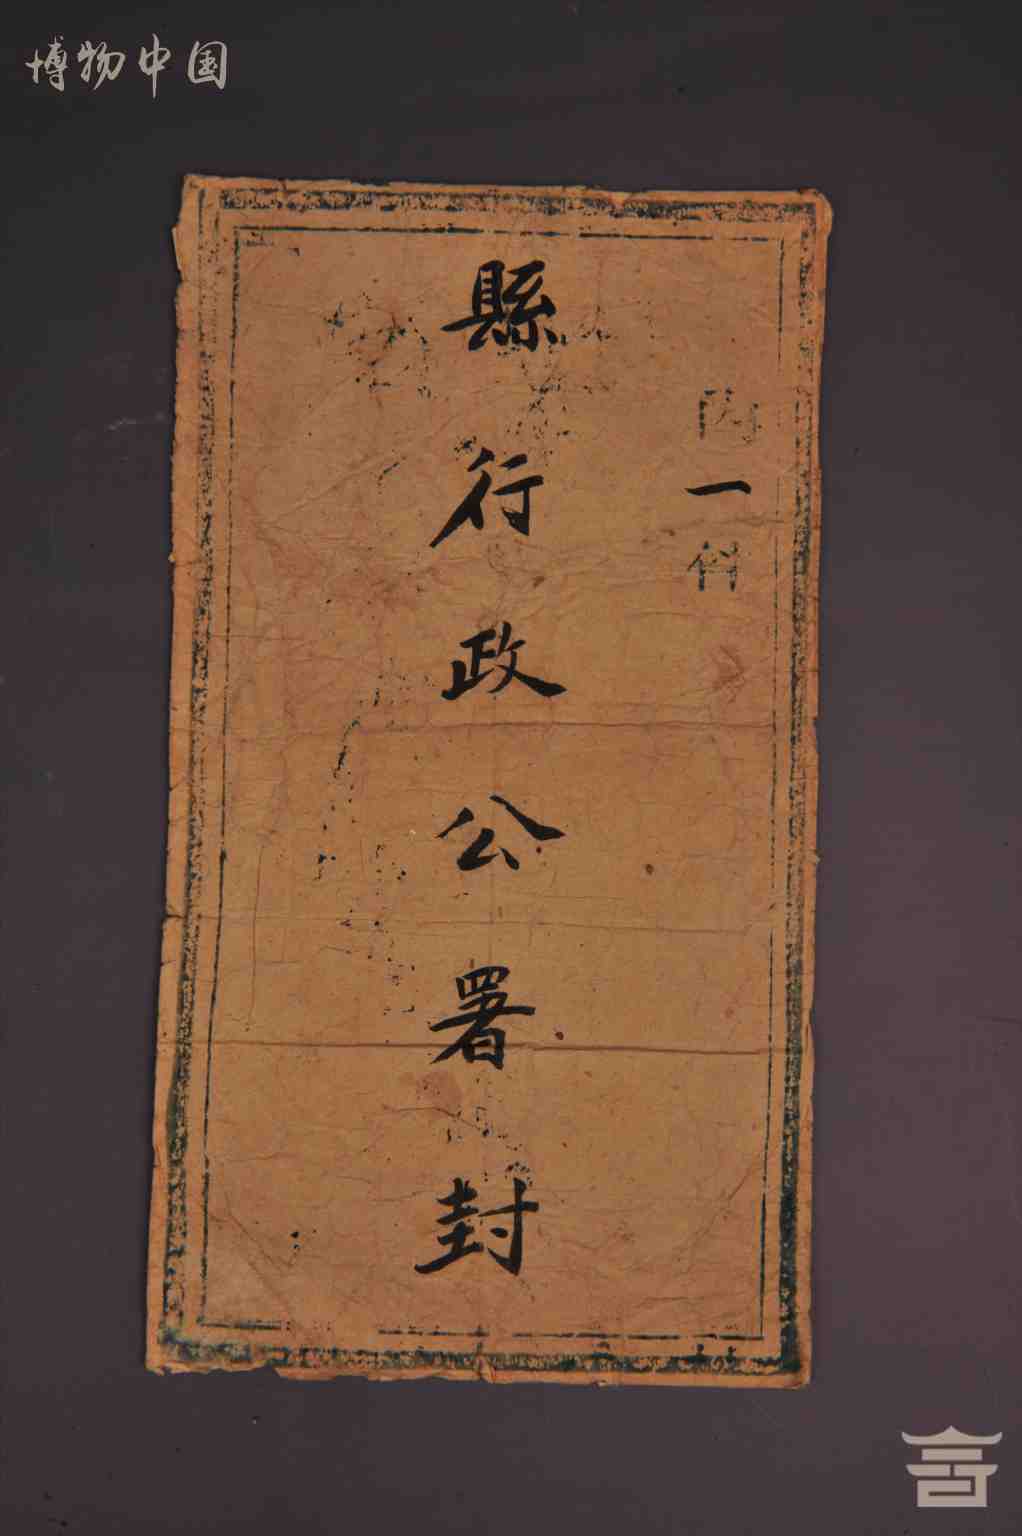 博物中国
内一科
縣行政公署封